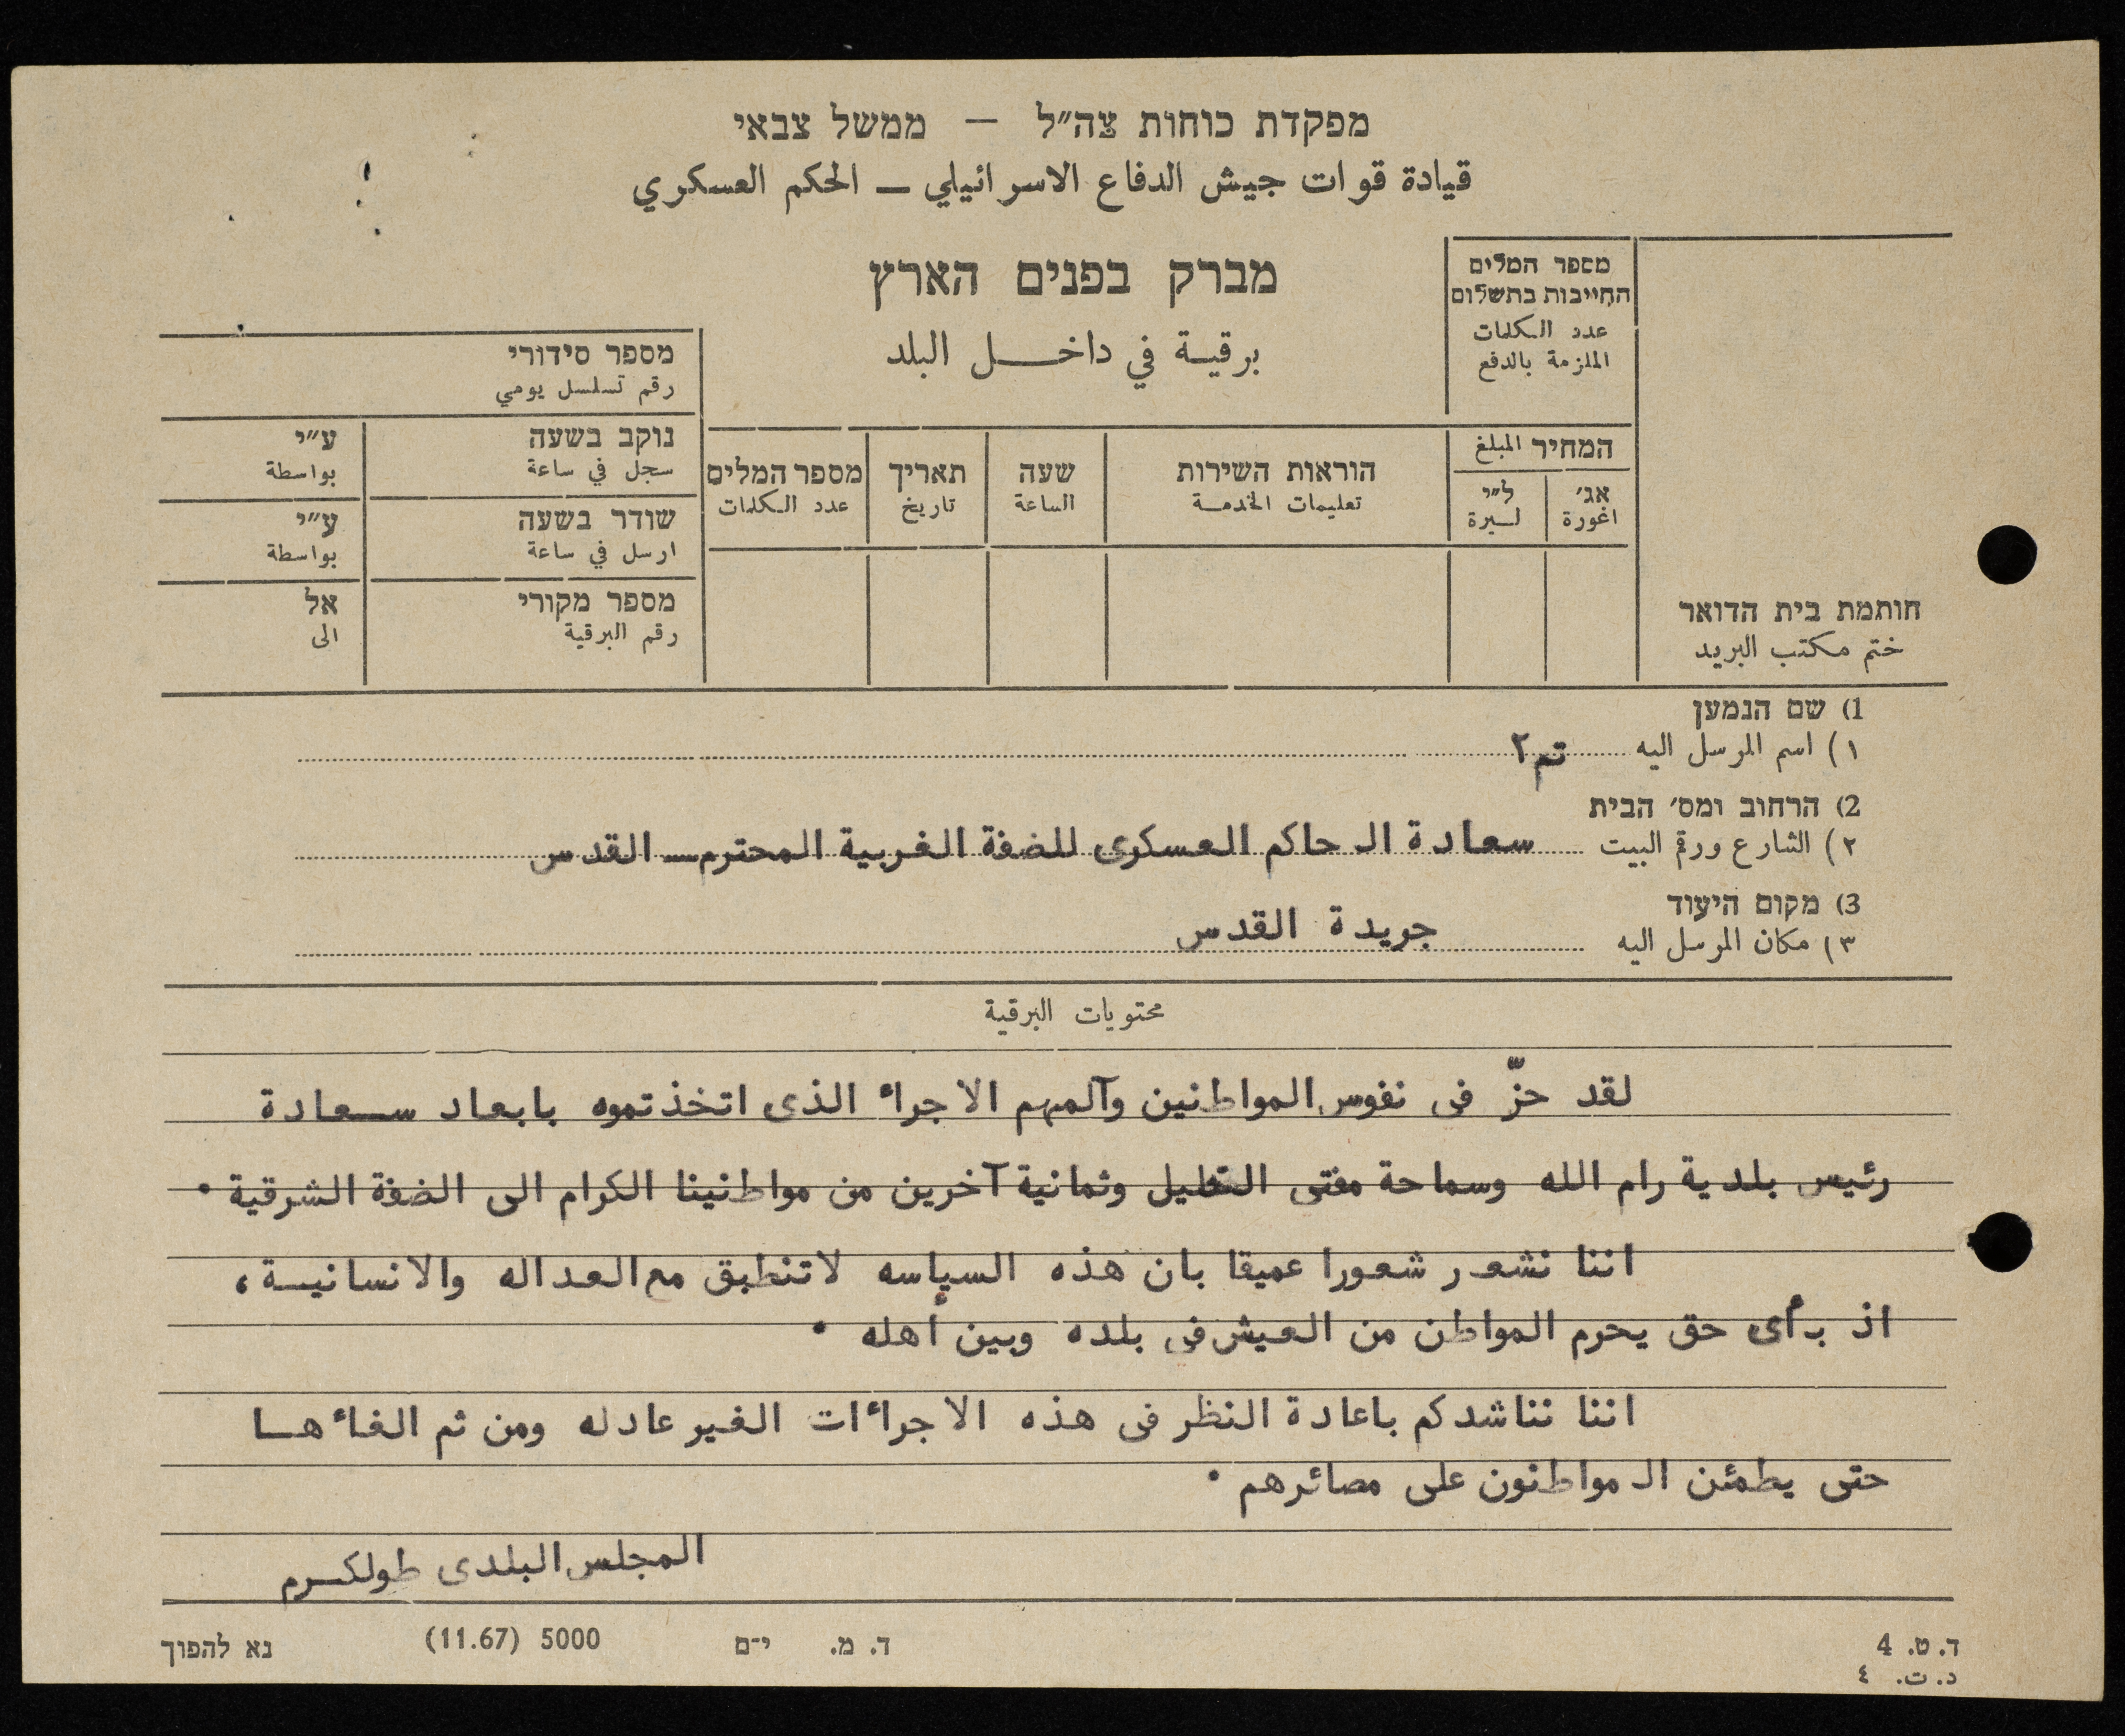 מפקדת כוחות צה״ל — ממשל צבאי
قيادة قوات جيش الدفاع الاسرائيلي — الحكم العسكري
מברק בפנים הארץ
برقية في داخل البلد
מספר המלים
החייבות בתשלום
عدد الكلمات
الملزمة بالدفع
המחיר المبلغ
אג׳ ל״י
اغورة ليرة
הוראות השירות
تعليمات الخدمة
שעה
الساعة
תאריך
تاريخ
מספר המלים
عدد الكلمات
מספר סידורי
رقم تسلسل يومي
נוקב בשעה ע״י
سجل في ساعة بواسطة
שודר בשעה ע״י
ارسل في ساعة بواسطة
מספר מקורי אל
رقم البرقية الى
חותמת בית הדואר
ختم مكتب البريد
1) שם הנמען
١) اسم المرسل اليه تم٢
2) הרחוב ומס׳ הבית
٢) الشارع ورقم البيت سعادة الحاكم العسكرى للضفة الغربية المحترم — القدس
3) מקום היעוד
٣) مكان المرسل اليه جريدة القدس
محتويات البرقية
لقد حزّ فى نفوس المواطنين وآلمهم الاجراء الذى اتخذتموه بابعاد سعادة
رئيس بلدية رام الله وسماحة مفتى الخليل وثمانية آخرين من مواطنينا الكرام الى الضفة الشرقية ٠
اننا نشعر شعورا عميقا بان هذه السياسه لاتنطبق مع العداله والانسانية ،
اذ بأى حق يحرم المواطن من العيش فى بلده وبين أهله ٠
اننا نناشدكم باعادة النظر فى هذه الاجراءات الغير عادله ومن ثم الغاءها
حتى يطمئن المواطنون على مصائرهم ٠
المجلس البلدى طولكرم
ד. ט. 4 ד. מ. י־ם 5000 (11.67) נא להפוך
د. ت. ٤